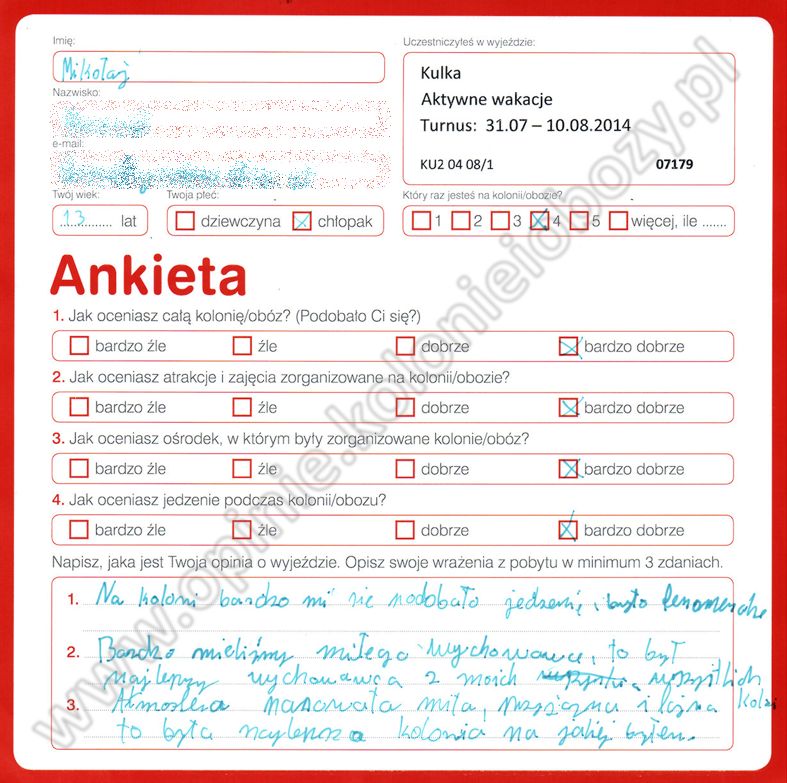 Imię:
Mikołaj
Nazwisko:
e-mail:
Twój wiek:
13 lat
Twoja płeć:
dziewczyna chłopak
Uczestniczyłeś w wyjeździe:
Kulka
Aktywne wakacje
Turnus: 31.07 – 10.08.2014
KU2 04 08/1 07179
Który raz jesteś na kolonii/obozie?
1 2 3 4 5 więcej, ile .......
Ankieta
1. Jak oceniasz całą kolonię/obóz? (Podobało Ci się?)
bardzo źle źle dobrze bardzo dobrze
2. Jak oceniasz atrakcje i zajęcia zorganizowane na kolonii/obozie?
bardzo źle źle dobrze bardzo dobrze
3. Jak oceniasz ośrodek, w którym były zorganizowane kolonie/obóz?
bardzo źle źle dobrze bardzo dobrze
4. Jak oceniasz jedzenie podczas kolonii/obozu?
bardzo źle źle dobrze bardzo dobrze
Napisz, jaka jest Twoja opinia o wyjeździe. Opisz swoje wrażenia z pobytu w minimum 3 zdaniach.
1. Na koloni bardzo mi się podobało jedzenie, było fenomenalne
2. Bardzo mieliśmy miłego wychowawce, to był
najlepszy wychowawca z moich wszystkich
3. Atmosfera panowała miła, przyjazna i fajna
to była najlepsza kolonia na jakiej byłem.
www.opinie.kolonieiobozy.pl